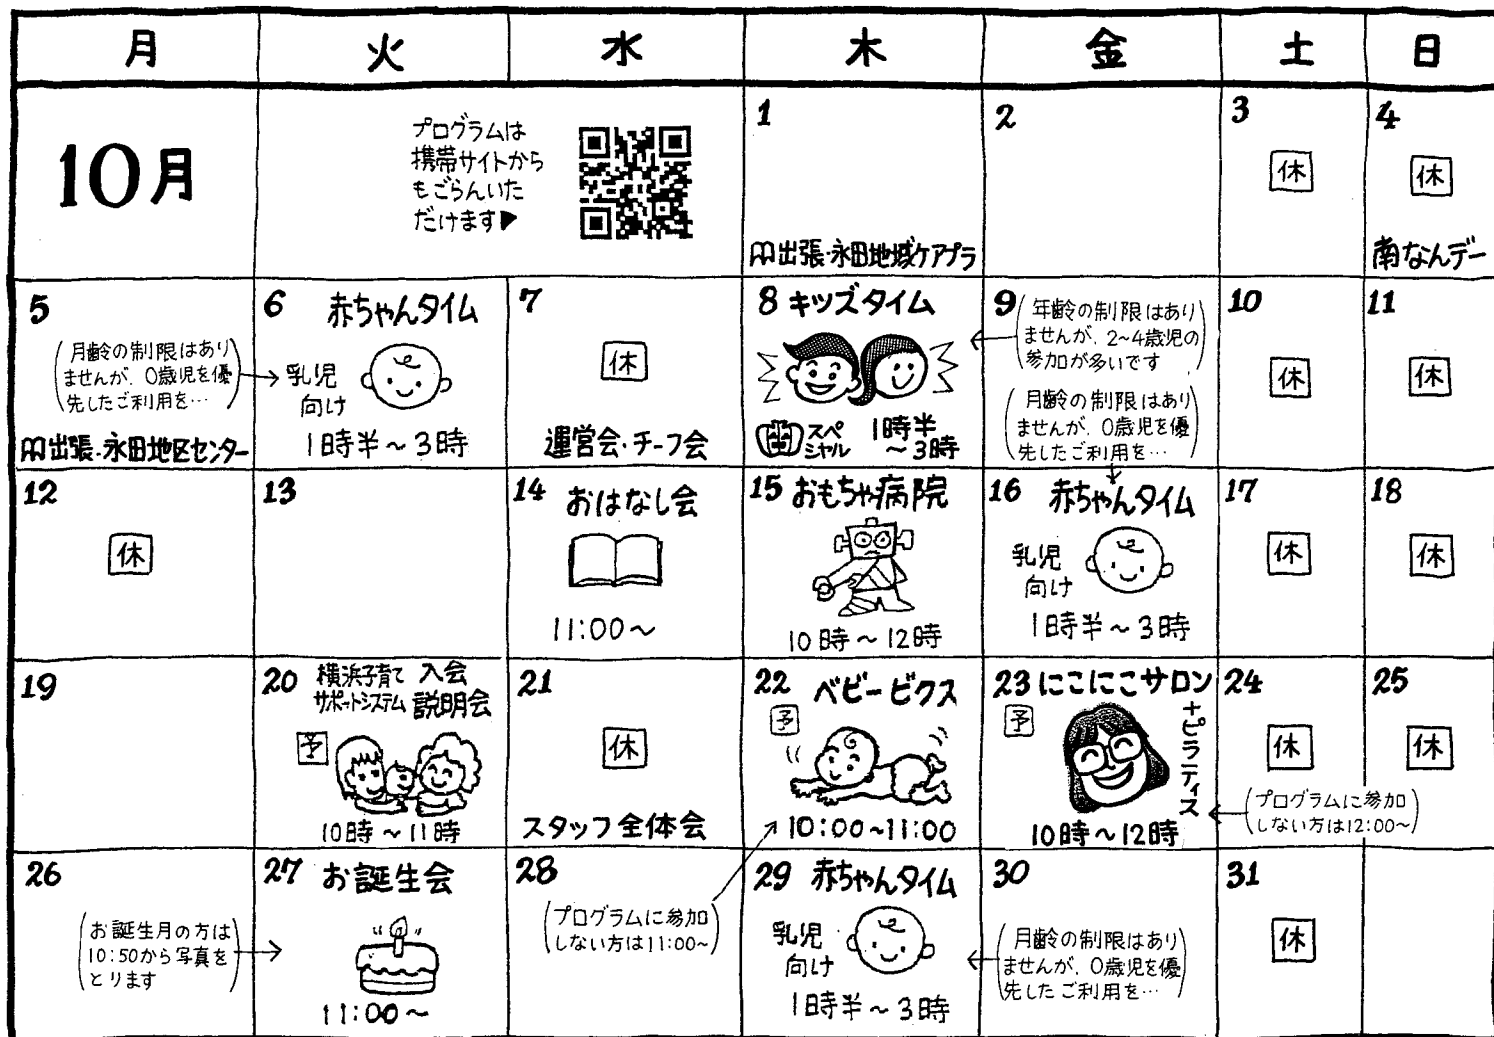 月 火 水 木 金 土 日
10月
プログラムは
携帯サイトから
もごらんいた
だけます▶
1
出張・永田地域ケアプラ
2
3
休
4
休
南なんデー
5
(月齢の制限はあり
ませんが、0歳児を優
先したご利用を…)
出張・永田地区センター
6 赤ちゃんタイム
乳児
向け
1時半~3時
7
休
運営会・チーフ会
8 キッズタイム
歯 スペ
シャル
1時半
~3時
9
(年齢の制限はあり
ませんが、2~4歳児の
参加が多いです)
(月齢の制限はあり
ませんが、0歳児を優
先したご利用を…)
10
休
11
休
12
休
13
14 おはなし会
11:00~
15 おもちゃ病院
10時~12時
16 赤ちゃんタイム
乳児
向け
1時半~3時
17
休
18
休
19
20 横浜子育て
サポートシステム
入会
説明会
予
10時~11時
21
休
スタッフ全体会
22 ベビービクス
予
10:00~11:00
23 にこにこサロン
+ピラティス
予
10時~12時
24
休
(プログラムに参加
しない方は12:00~)
25
休
26
(お誕生月の方は
10:50から写真を
とります)
27 お誕生会
11:00~
28
(プログラムに参加
しない方は11:00~)
29 赤ちゃんタイム
乳児
向け
1時半~3時
30
(月齢の制限はあり
ませんが、0歳児を優
先したご利用を…)
31
休